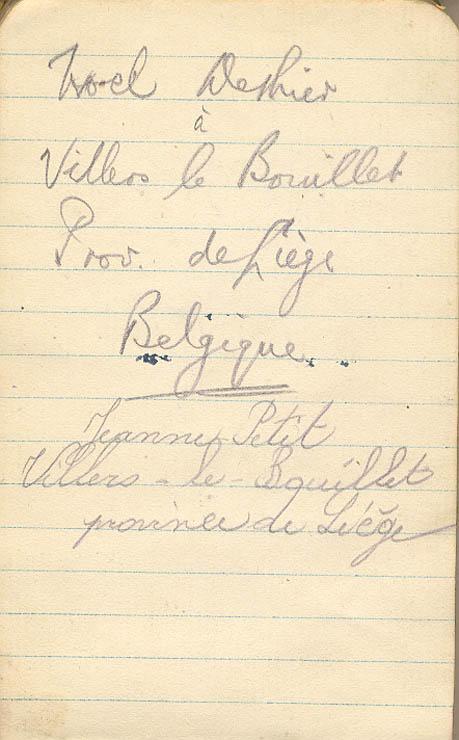 Noel Dethier
à
Villers le Bouillet
Prov. de Liège
Belgique
Jeanne Petit
Villers-le-Bouillet
province de Liège